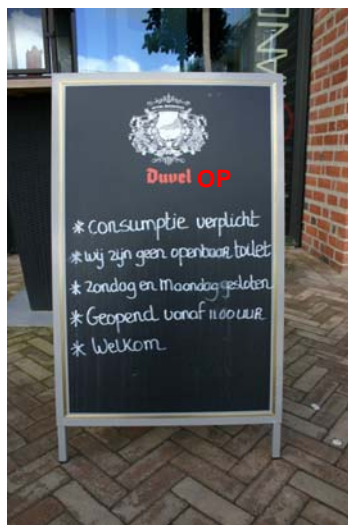 Duvel OP
* consumptie verplicht
* wij zijn geen openbaar toilet
* Zondag en Maandag gesloten
* Geopend vanaf 11.00 uur
* Welkom